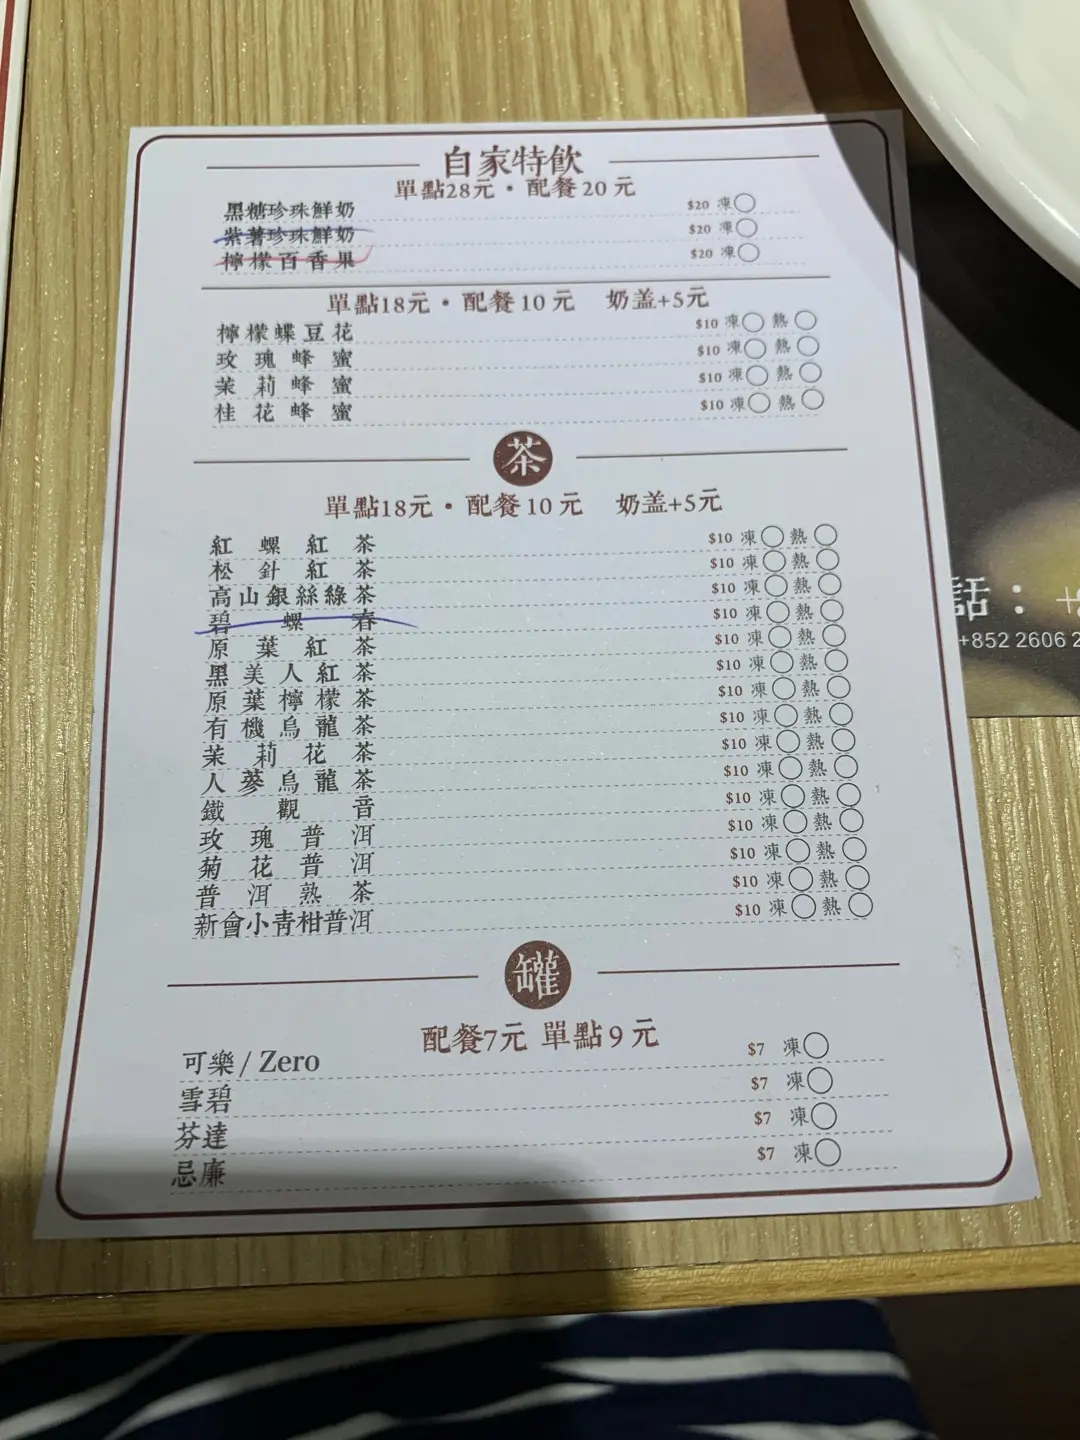 自家特飲
單點28元・配餐20元
黑糖珍珠鮮奶 $20 凍
紫薯珍珠鮮奶 $20 凍
檸檬百香果 $20 凍
單點18元・配餐10元 奶盖+5元
檸檬蝶豆花 $10 凍 熱
玫瑰蜂蜜 $10 凍 熱
茉莉蜂蜜 $10 凍 熱
桂花蜂蜜 $10 凍 熱
茶
單點18元・配餐10元 奶盖+5元
紅螺紅茶 $10 凍 熱
松針紅茶 $10 凍 熱
高山銀絲綠茶 $10 凍 熱
碧螺春 $10 凍 熱
原葉紅茶 $10 凍 熱
黑美人紅茶 $10 凍 熱
原葉檸檬茶 $10 凍 熱
有機烏龍茶 $10 凍 熱
茉莉花茶 $10 凍 熱
人蔘烏龍茶 $10 凍 熱
鐵觀音 $10 凍 熱
玫瑰普洱 $10 凍 熱
菊花普洱 $10 凍 熱
普洱熟茶 $10 凍 熱
新會小青柑普洱 $10 凍 熱
罐
配餐7元 單點9元
可樂/Zero $7 凍
雪碧 $7 凍
芬達 $7 凍
忌廉 $7 凍
話：
+852 2606